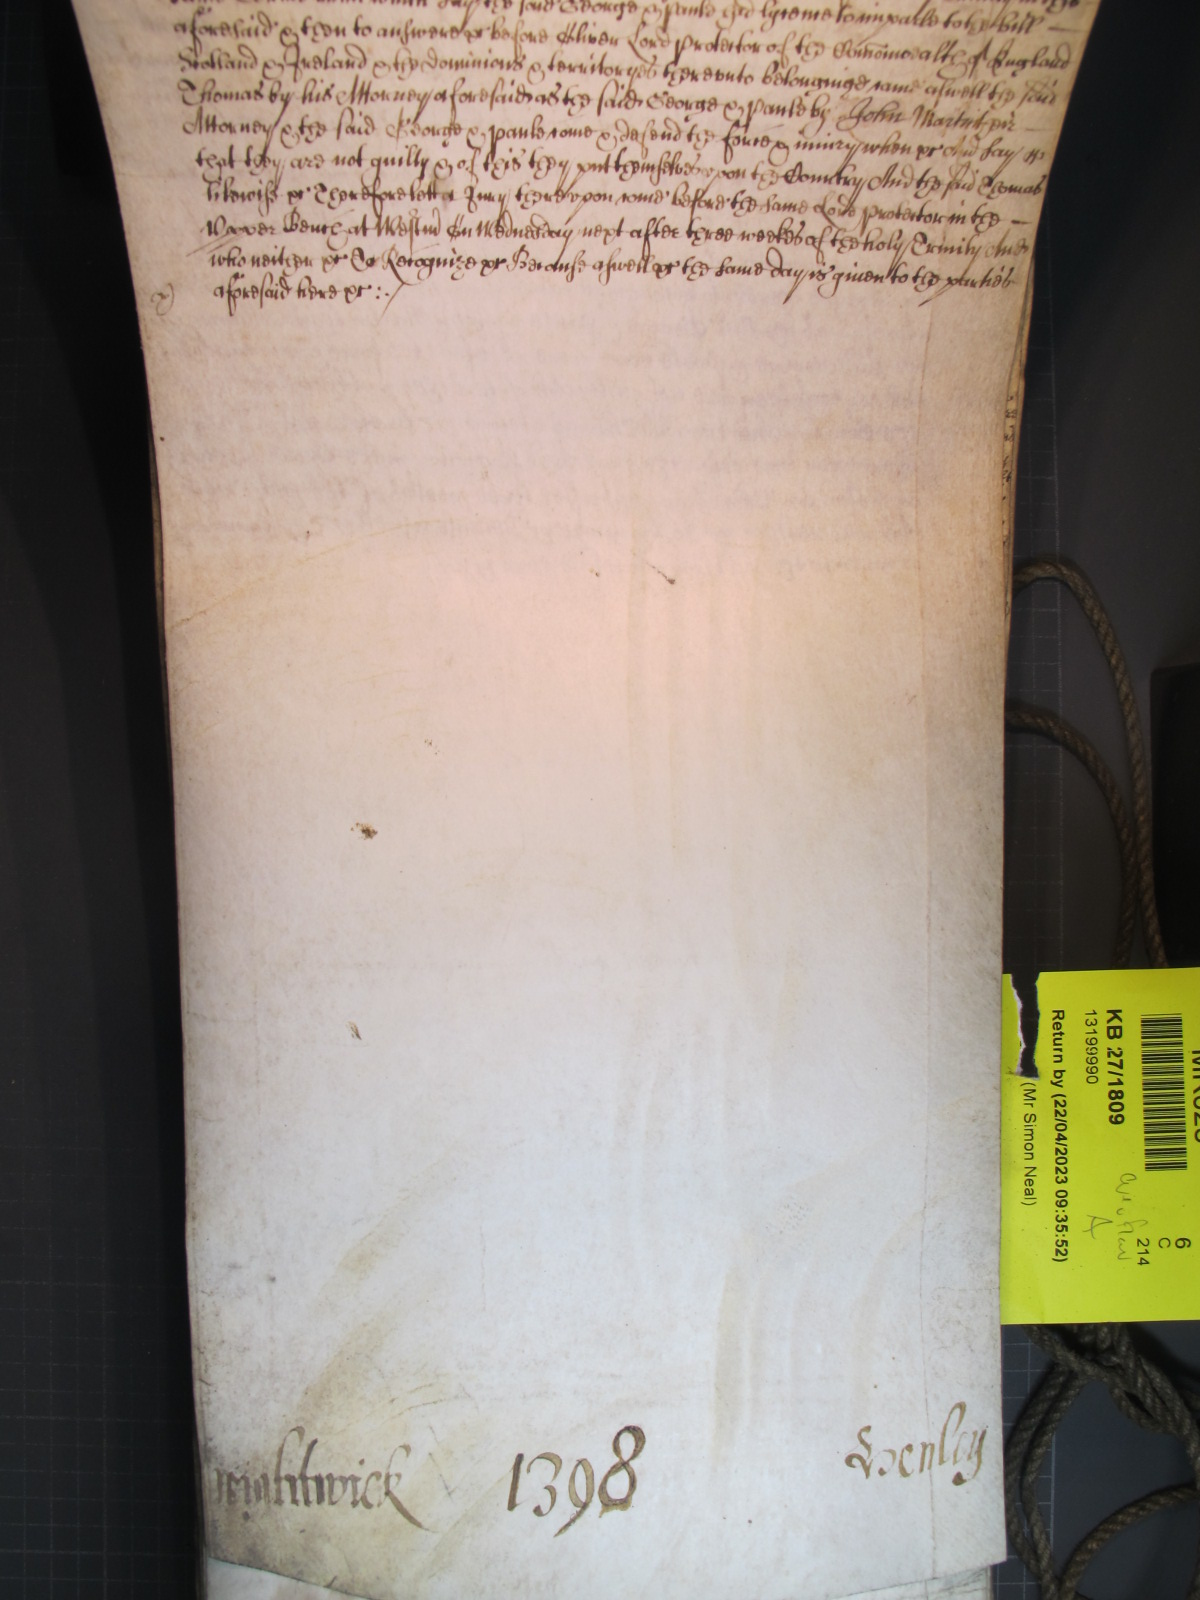 the said George & Paule had lycense to imparle to the bill
aforesaid & then to answere &c before Oliver Lord Protector of the Comonwealth of England
Scotland & Ireland & the dominions & territoryes thereunto belonginge came aswell the said
Thomas by his Attorney aforesaid as the said George & Paule by John Martin their
Attorney & the said George & Paule come & defend the force & iniury when &c And say
that they are not guilty & of this they putt themselves upon the Country And the said Thomas
likewise &c Therefore lett a Jury thereupon come before the same Lord Protector in the
Upper Bench at Westm̃ On Wednesday next after three weekes of the holy Trinity And
who neither &c To Recognize &c Because aswell &c the same day is given to the parties
aforesaid here &c :/
1398
Henley
KB 27/1809
13199990
Return by (22/04/2023 09:35:52)
(Mr Simon Neal)
6
C
214
A